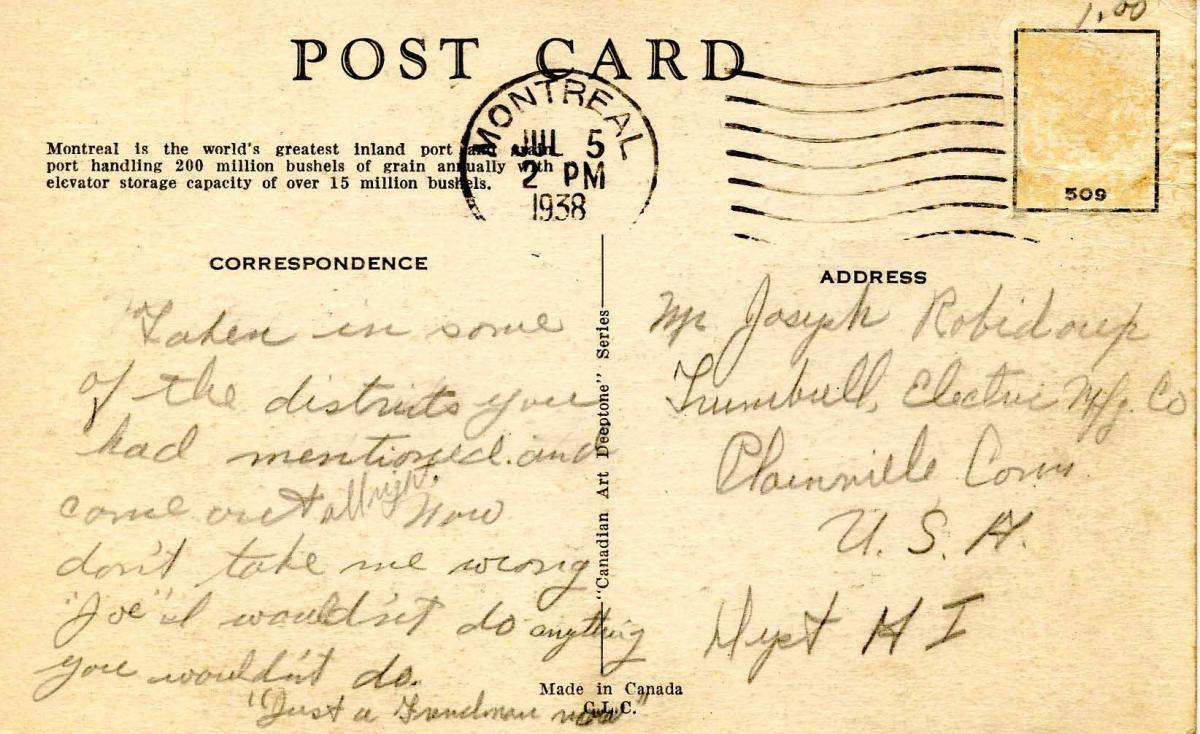 1.00
POST CARD
MONTREAL
JUL 5
2 PM
1938
509
Montreal is the world's greatest inland port and grain
port handling 200 million bushels of grain annually with
elevator storage capacity of over 15 million bushels.
CORRESPONDENCE
Taken in some
of the districts you
had mentioned. and
come out allright. Now
don't take me wrong
"Joe" I wouldn't do anything
you wouldn't do.
"Just a Frenchman now"
"Canadian Art Deeptone" Series
Made in Canada
C.L.C.
ADDRESS
Mr Joseph Robidoux
Trumbull, Electric Mfg. Co
Plainville Conn.
U. S. A.
Dept H I